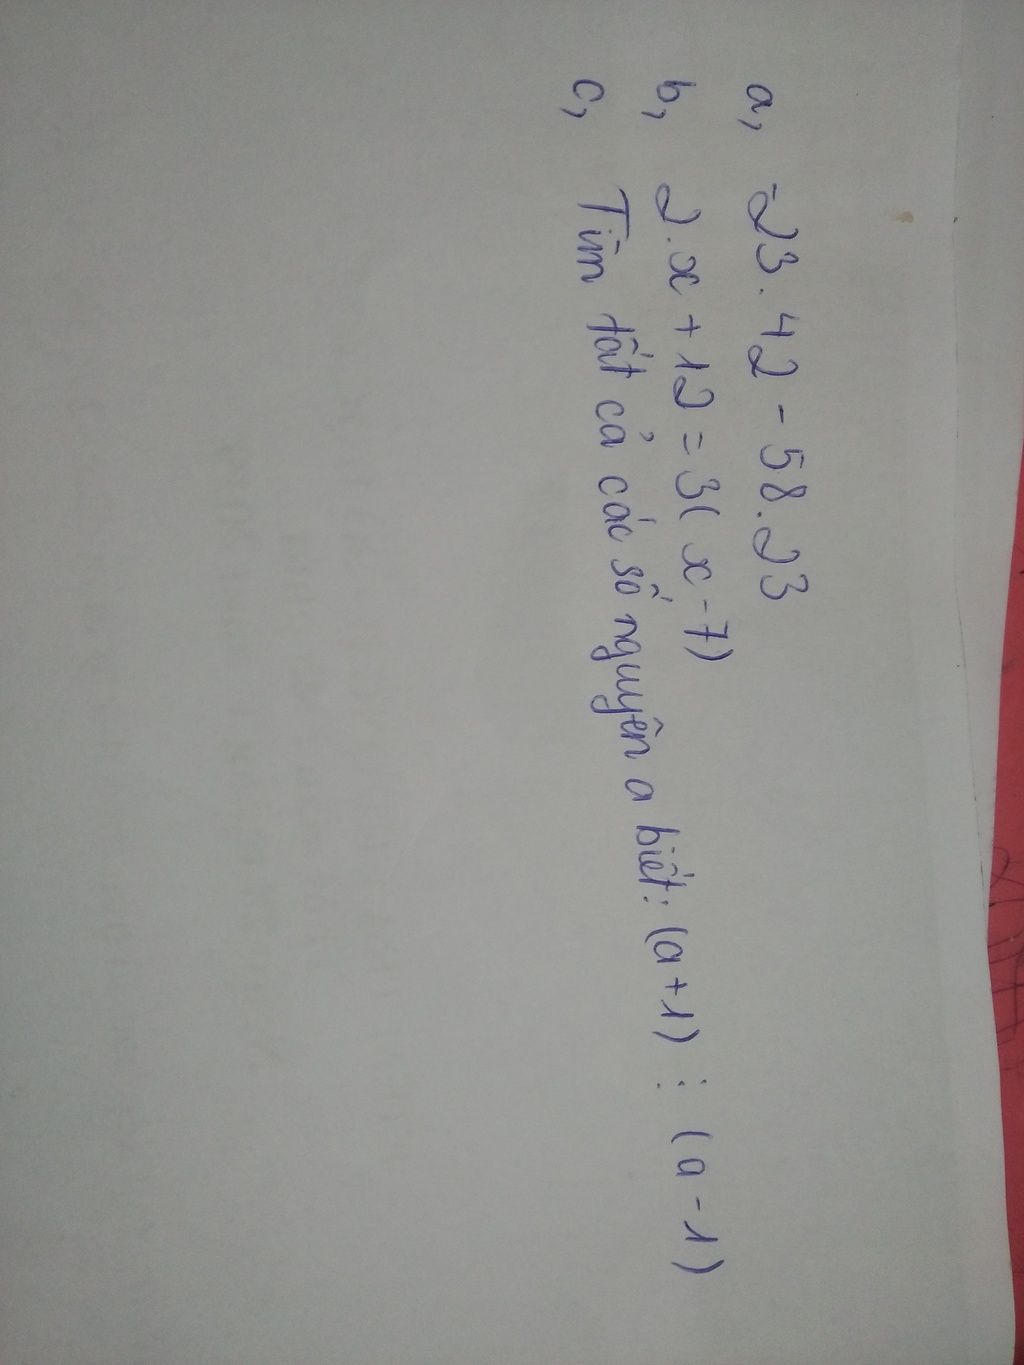 a, -23.42 - 58.23
b, 2.x + 12 = 3( x - 7)
c, Tìm tất cả các số nguyên a biết: (a+1) ⋮ (a - 1)